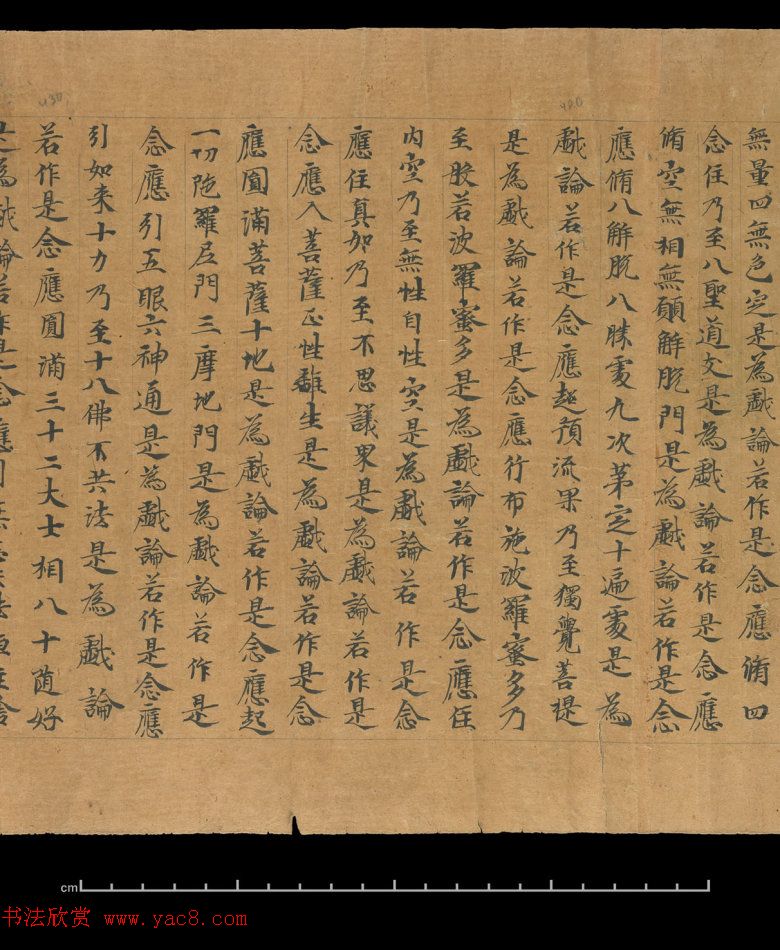 無量四無色定是為戲論若作是念應脩四
念住乃至八聖道支是為戲論若作是念應
脩空無相無願解脫門是為戲論若作是念
應脩八解脫八勝處九次第定十遍處是為
戲論若作是念應趣預流果乃至獨覺菩提
是為戲論若作是念應行布施波羅蜜多乃
至般若波羅蜜多是為戲論若作是念應住
內空乃至無性自性空是為戲論若作是念
應住真如乃至不思議界是為戲論若作是
念應入菩薩正性離生是為戲論若作是念
應圓滿菩薩十地是為戲論若作是念應起
一切陀羅尼門三摩地門是為戲論若作是
念應引五眼六神通是為戲論若作是念應
引如来十力乃至十八佛不共法是為戲論
若作是念應圓滿三十二大士相八十随好
是為戲論若作是念應
430
420
cm
书法欣赏 www.yac8.com